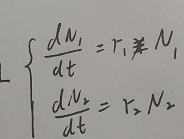 dN₁/dt = r₁ N₁
dN₂/dt = r₂ N₂